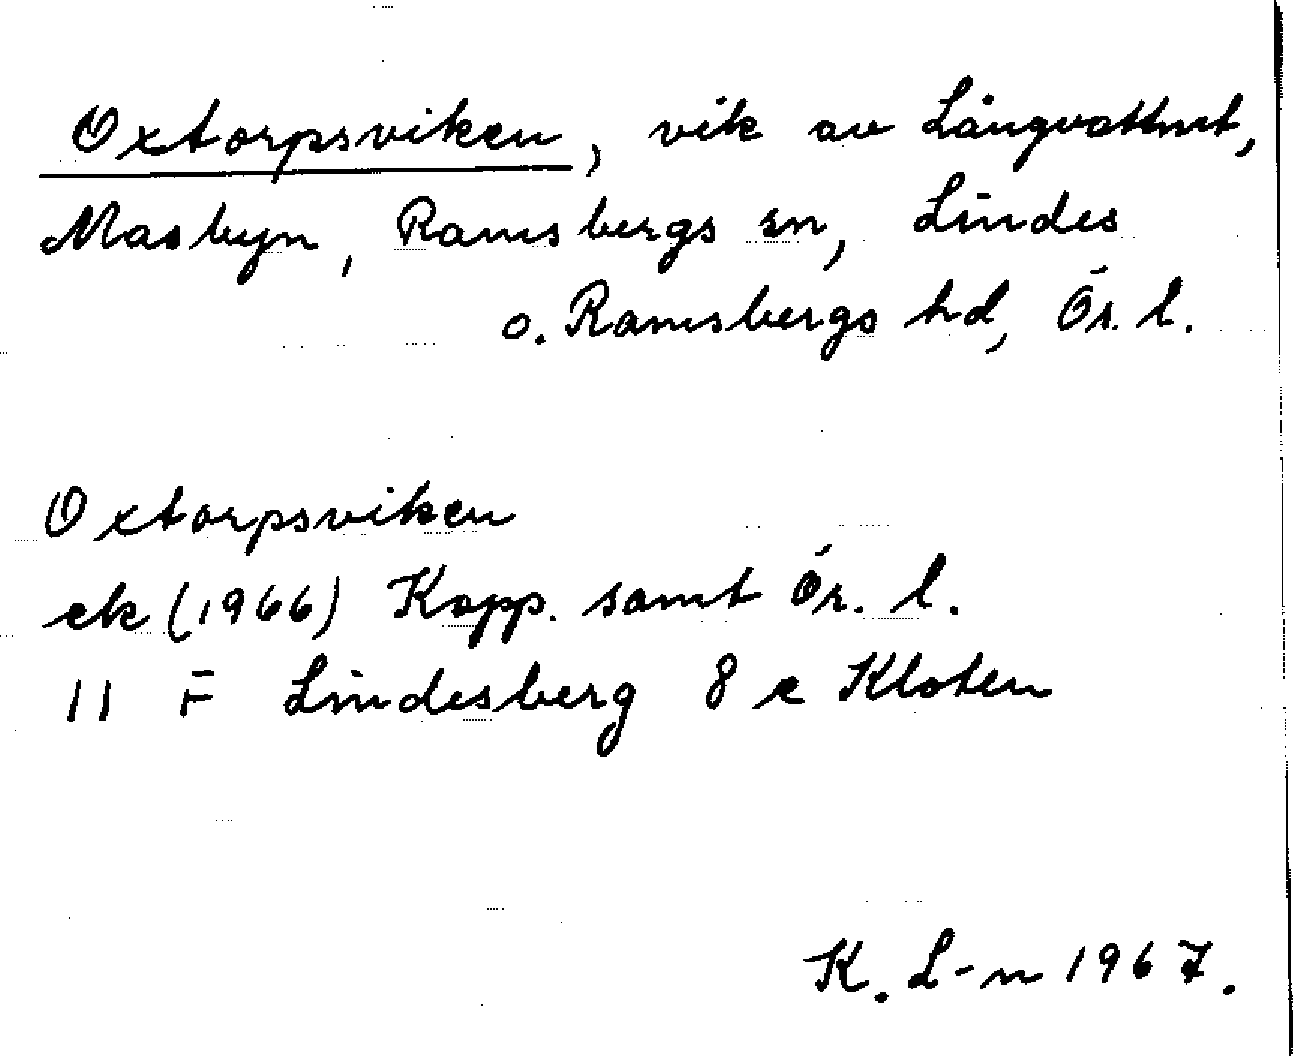 Oxtorpsviken, vik av Långvattnet,
Masbyn, Ramsbergs sn, Lindes
o. Ramsbergs hd, Ör. l.
Oxtorpsviken
ek (1966) Kopp. samt Ör. l.
11 F Lindesberg 8 e Kloten
K. L-n 1967.